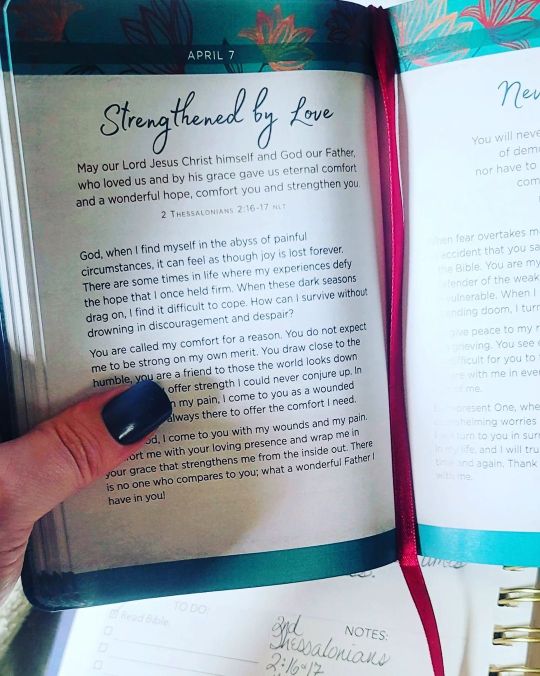 APRIL 7
Strengthened by Love
May our Lord Jesus Christ himself and God our Father,
who loved us and by his grace gave us eternal comfort
and a wonderful hope, comfort you and strengthen you.
2 THESSALONIANS 2:16-17 NLT
God, when I find myself in the abyss of painful
circumstances, it can feel as though joy is lost forever.
There are some times in life where my experiences defy
the hope that I once held firm. When these dark seasons
drag on, I find it difficult to cope. How can I survive without
drowning in discouragement and despair?
You are called my comfort for a reason. You do not expect
me to be strong on my own merit. You draw close to the
humble, you are a friend to those the world looks down
offer strength I could never conjure up. In
my pain, I come to you as a wounded
always there to offer the comfort I need.
I come to you with my wounds and my pain.
me with your loving presence and wrap me in
your grace that strengthens me from the inside out. There
is no one who compares to you; what a wonderful Father I
have in you!
You will neve
of dem
nor have to
com
hen fear overtakes m
accident that you sa
the Bible. You are my
ender of the weak
ulnerable. When I
nding doom, I turn
peace to my
grieving. You see
ficult for you to
with me in eve
me.
present One, whe
whelming worries
turn to you in surr
life, and I will tru
and again. Thank
me.
TO DO:
Read Bible
NOTES:
2nd
Thessalonians
2:16-17